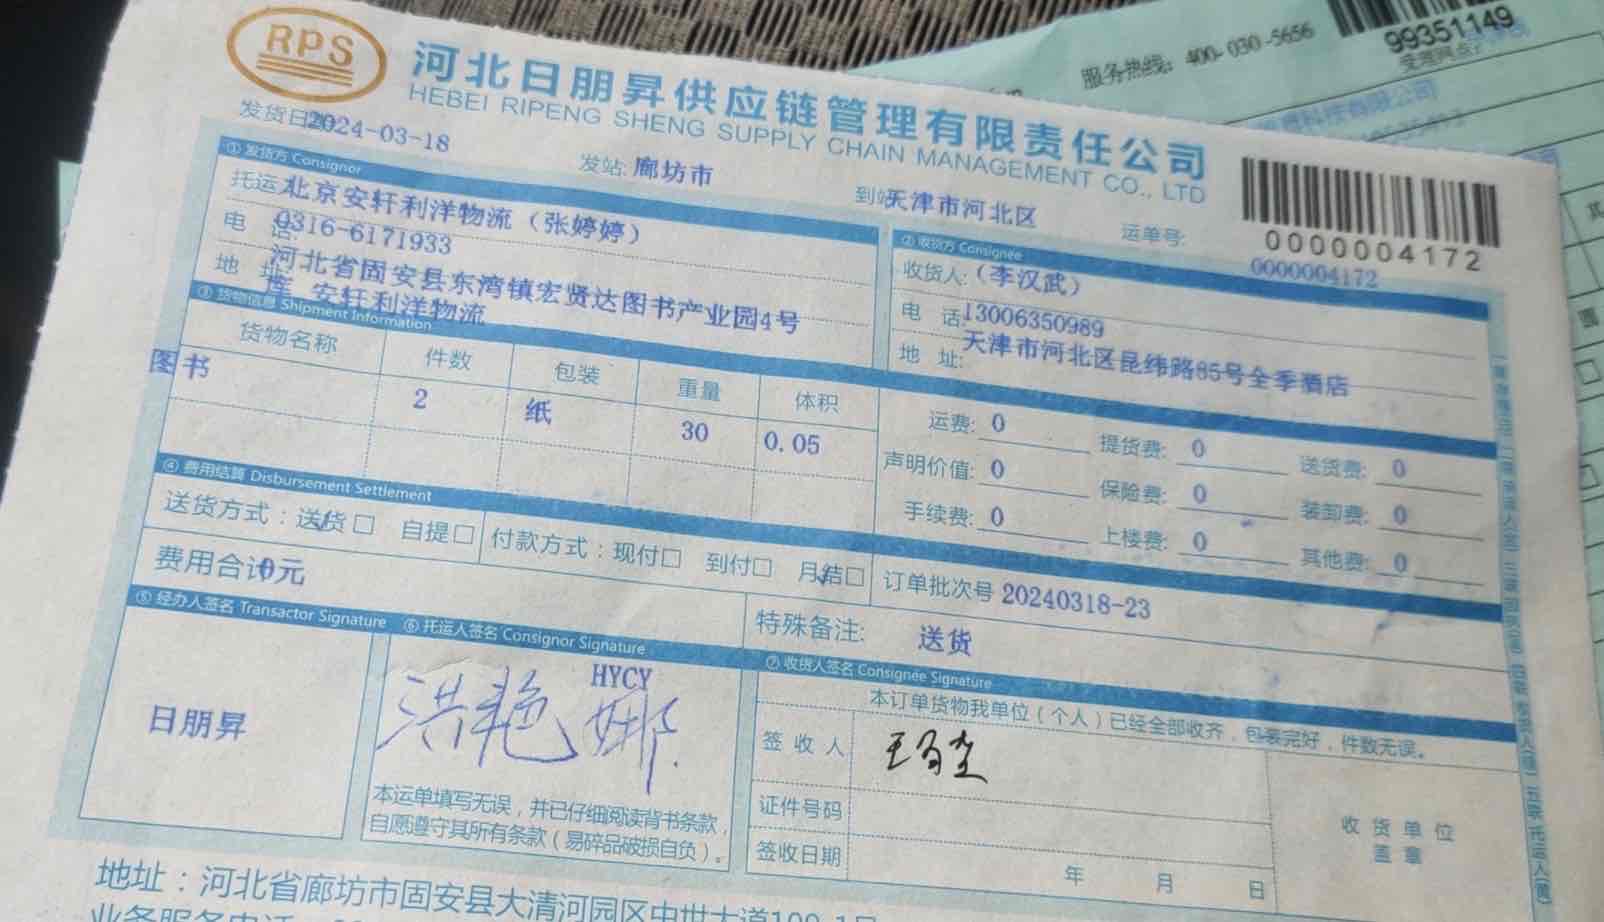 RPS
河北日朋昇供应链管理有限责任公司
HEBEI RIPENG SHENG SUPPLY CHAIN MANAGEMENT CO., LTD
服务热线: 400-030-5656
99351149
发货日 2024-03-18
发站: 廊坊市
到站 天津市河北区
运单号:
0000004172
0000004172
① 发货方 Consignor
托运 北京安轩利洋物流（张婷婷）
电 话: 0316-6171933
地 址 河北省固安县东湾镇宏贤达图书产业园4号
库 安轩利洋物流
② 收货方 Consignee
收货人: （李汉武）
电 话: 13006350989
地 址: 天津市河北区昆纬路85号全季酒店
③ 货物信息 Shipment Information
货物名称 件数 包装 重量 体积
图书 2 纸 30 0.05
运费: 0 提货费: 0 送货费: 0
声明价值: 0 保险费: 0 装卸费: 0
手续费: 0 上楼费: 0 其他费: 0
④ 费用结算 Disbursement Settlement
送货方式: 送货□ 自提□ 付款方式: 现付□ 到付□ 月结□
订单批次号 20240318-23
费用合计 0元
特殊备注: 送货
⑤ 经办人签名 Transactor Signature
日朋昇
⑥ 托运人签名 Consignor Signature
HYCY
洪艳娜
本运单填写无误，并已仔细阅读背书条款，
自愿遵守其所有条款（易碎品破损自负）。
⑦ 收货人签名 Consignee Signature
本订单货物我单位（个人）已经全部收齐，包装完好，件数无误。
签收人
证件号码
签收日期
年 月 日
收货单位
盖章
地址：河北省廊坊市固安县大清河园区中世大道